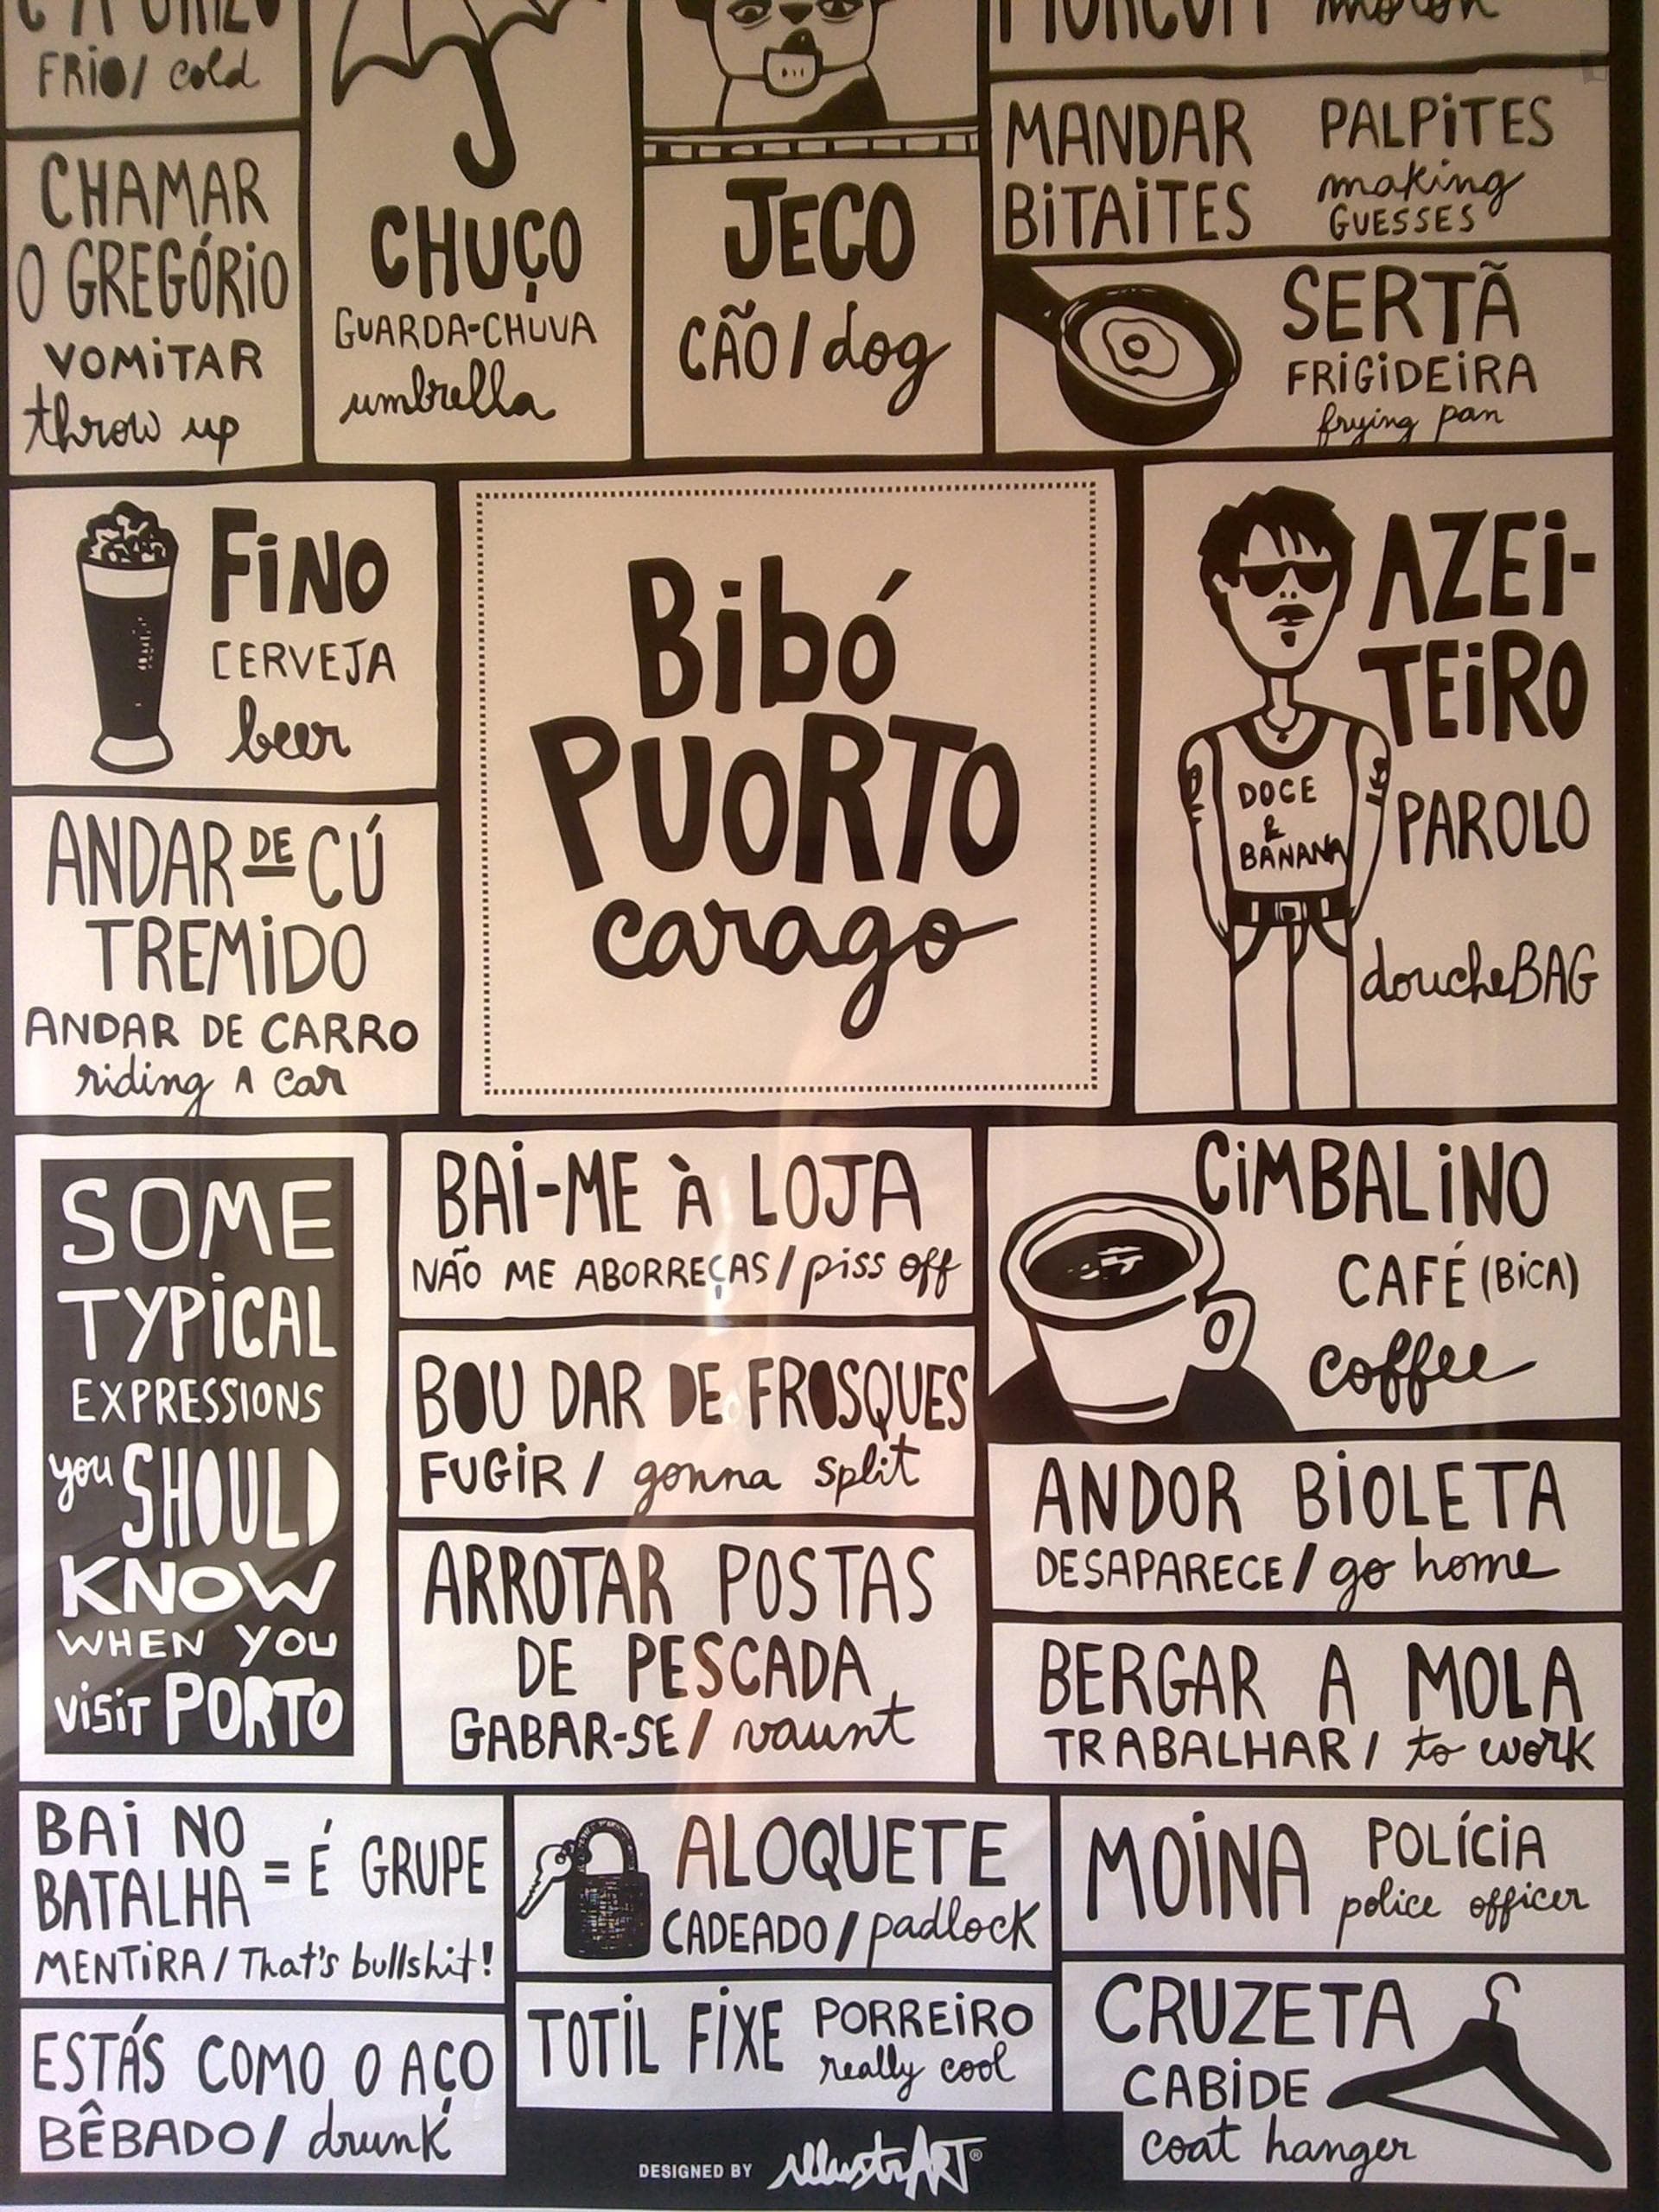 FRIO / cold
CHAMAR
O GREGÓRIO
VOMITAR
throw up
CHUÇO
GUARDA-CHUVA
umbrella
JECO
CÃO / dog
MANDAR
BITAITES
PALPITES
making
GUESSES
SERTÃ
FRIGIDEIRA
frying pan
FINO
CERVEJA
beer
ANDAR DE CÚ
TREMIDO
ANDAR DE CARRO
riding A car
Bibó
PUORTO
carago
AZEI-
TEIRO
PAROLO
doucheBAG
DOCE
&
BANANA
SOME
TYPICAL
EXPRESSIONS
you SHOULD
KNOW
WHEN YOU
visit PORTO
BAI-ME À LOJA
NÃO ME ABORREÇAS / piss off
BOU DAR DE FROSQUES
FUGIR / gonna split
ARROTAR POSTAS
DE PESCADA
GABAR-SE / vaunt
CIMBALINO
CAFÉ (BICA)
coffee
ANDOR BIOLETA
DESAPARECE / go home
BERGAR A MOLA
TRABALHAR / to work
BAI NO
BATALHA = É GRUPE
MENTIRA / That's bullshit!
ESTÁS COMO O AÇO
BÊBADO / drunk
ALOQUETE
CADEADO / padlock
TOTIL FIXE
PORREIRO
really cool
MOINA
POLÍCIA
police officer
CRUZETA
CABIDE
coat hanger
DESIGNED BY illustrART®